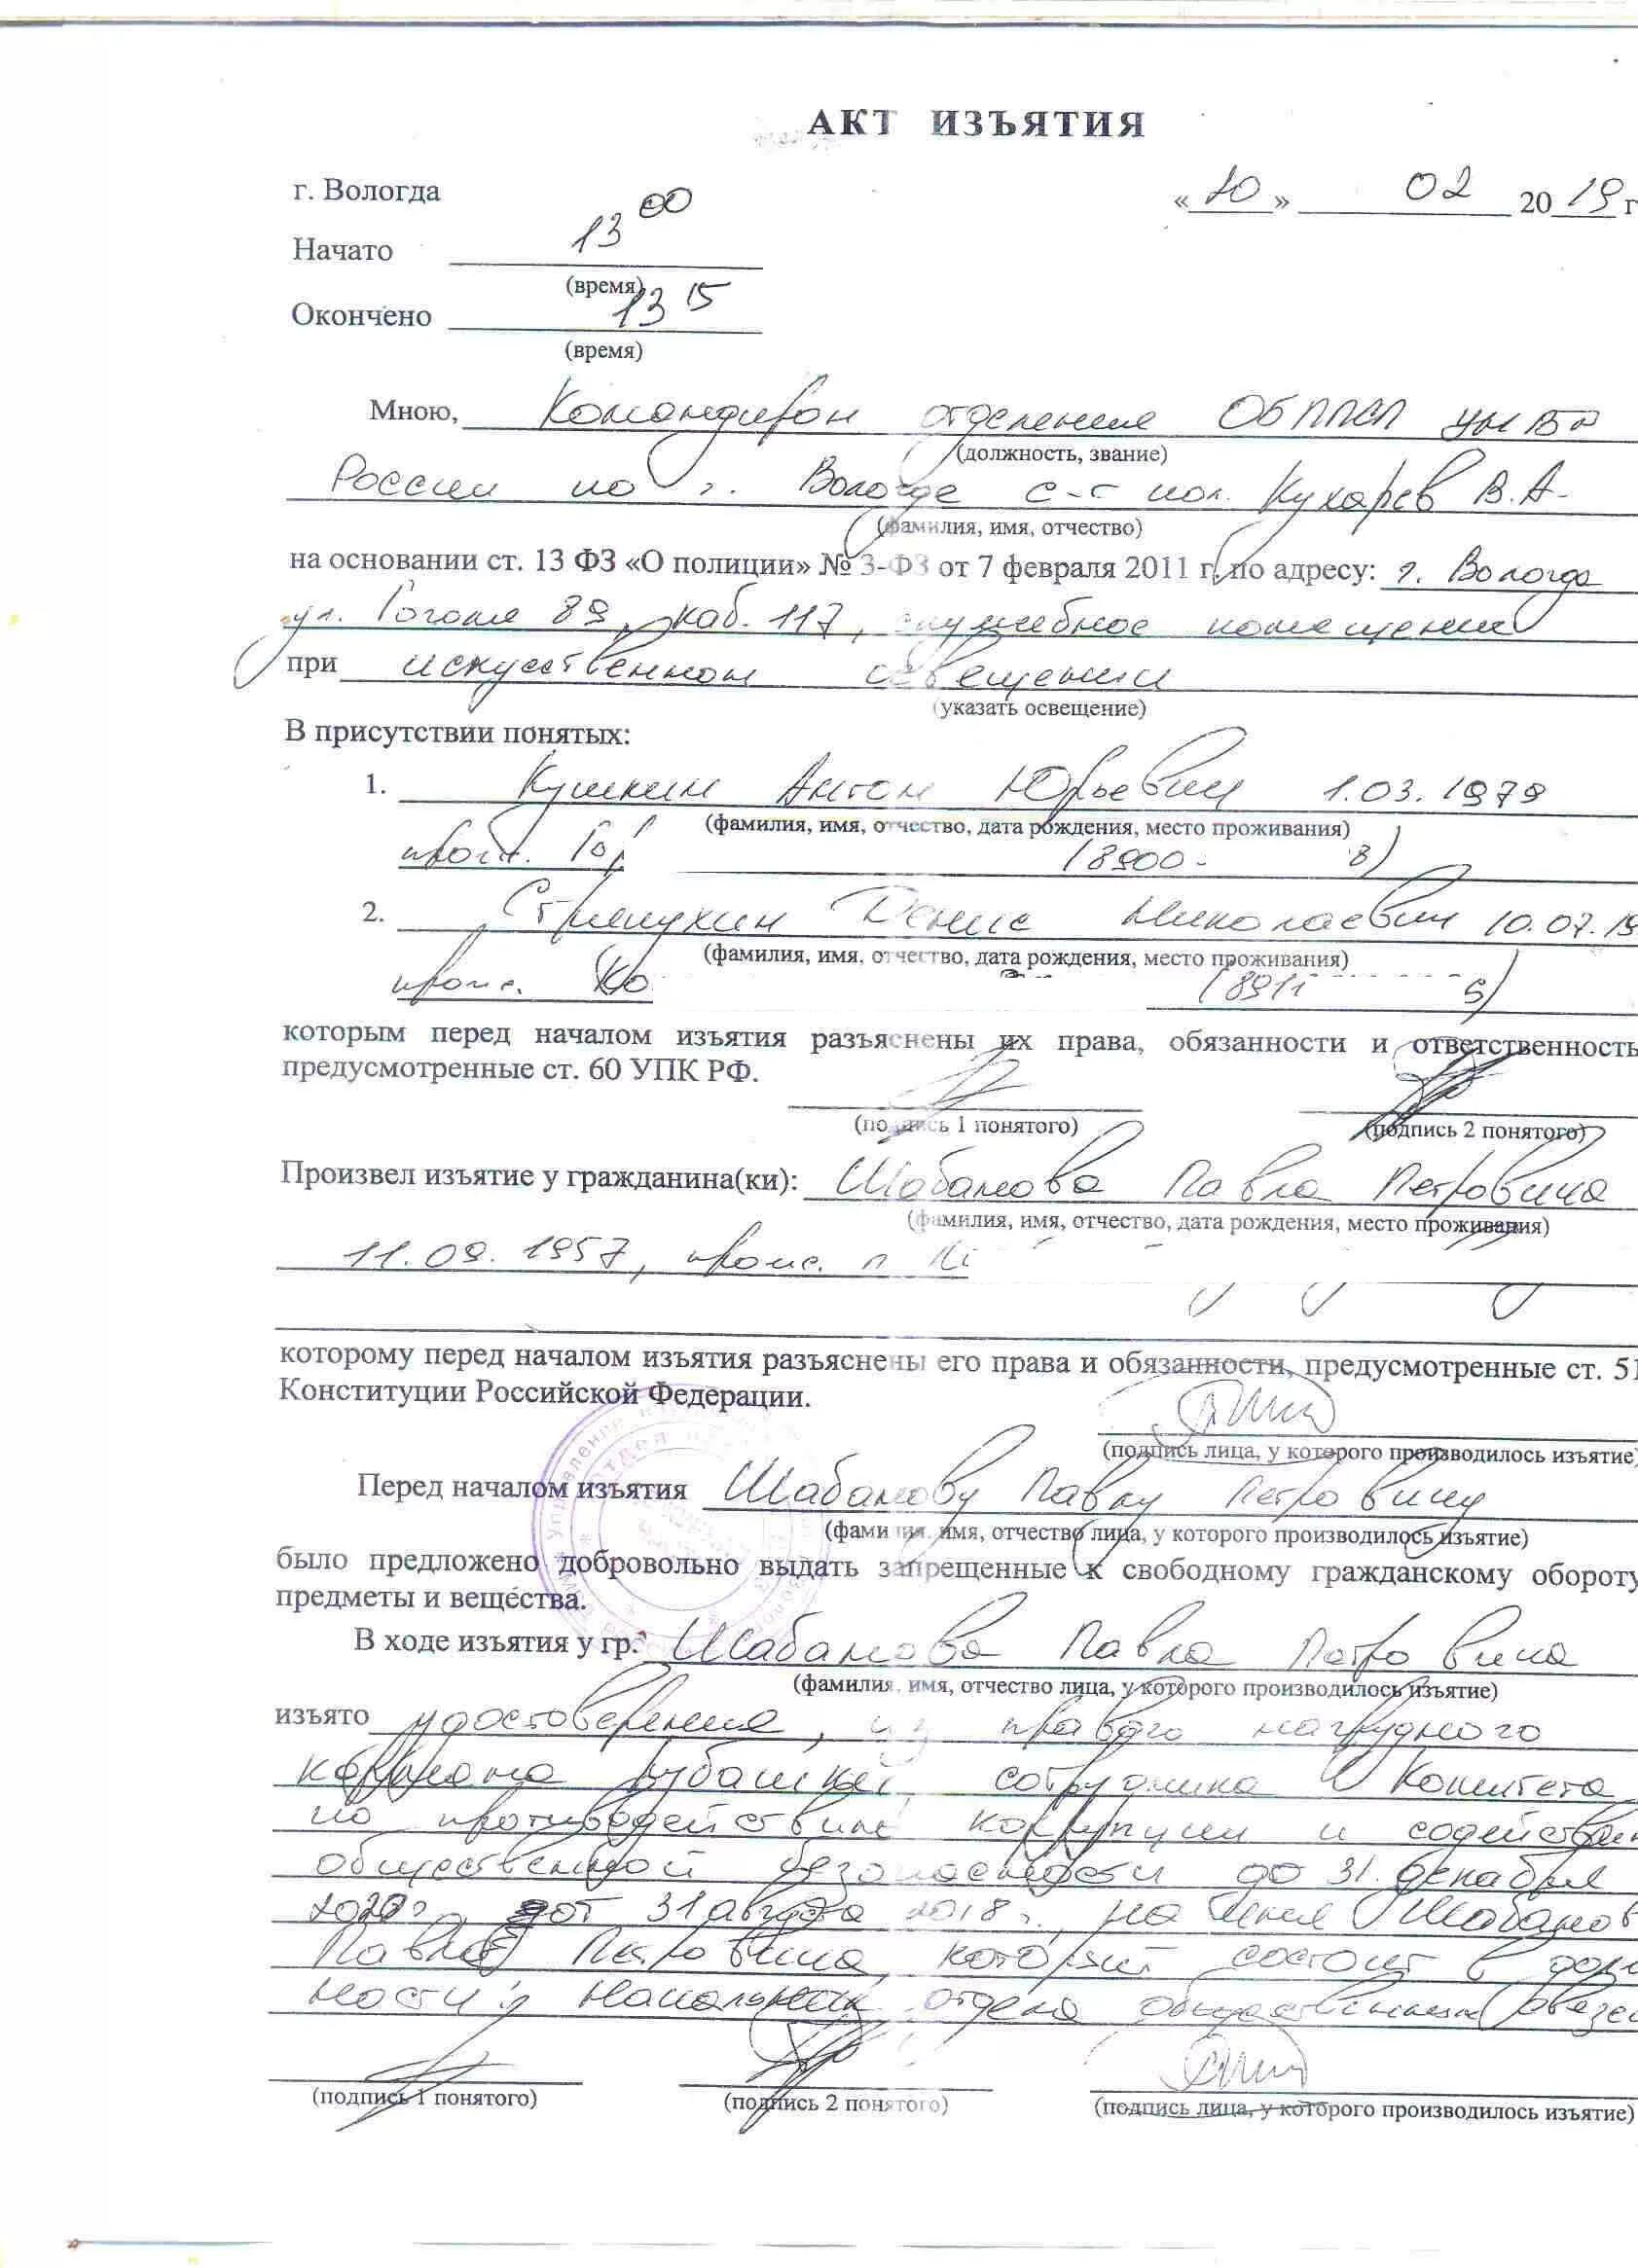 АКТ ИЗЪЯТИЯ
г. Вологда «10» 02 2019 г
Начато 13 00
(время)
Окончено 13 15
(время)
Мною, Командиром отделения ОБППСП УМВД
(должность, звание)
России по г. Вологде с-т пол. Кухарев В.А.
(фамилия, имя, отчество)
на основании ст. 13 ФЗ «О полиции» № 3-ФЗ от 7 февраля 2011 г. по адресу: г. Вологда
ул. Гоголя 89, каб. 117, служебное помещение
при искусственном освещении
(указать освещение)
В присутствии понятых:
1. Кушкин Антон Юрьевич 1.03.1979
(фамилия, имя, отчество, дата рождения, место проживания)
(8900-
2. Денис Николаевич 10.07.19
(фамилия, имя, отчество, дата рождения, место проживания)
(8911
которым перед началом изъятия разъяснены их права, обязанности и ответственность
предусмотренные ст. 60 УПК РФ.
(подпись 1 понятого) (подпись 2 понятого)
Произвел изъятие у гражданина(ки): Шабанова Павла Петровича
(фамилия, имя, отчество, дата рождения, место проживания)
11.09.1957,
которому перед началом изъятия разъяснены его права и обязанности, предусмотренные ст. 51
Конституции Российской Федерации.
(подпись лица, у которого производилось изъятие)
Перед началом изъятия Шабанову Павлу Петровичу
(фамилия, имя, отчество лица, у которого производилось изъятие)
было предложено добровольно выдать запрещенные к свободному гражданскому обороту
предметы и вещества.
В ходе изъятия у гр. Шабанова Павла Петровича
(фамилия, имя, отчество лица, у которого производилось изъятие)
изъято удостоверение, из правого нагрудного
кармана рубашки, сотрудника Комитета
по противодействию коррупции и
общественной безопасности до 31 декабря
2020г от 31 августа 2018 г., на имя Шабанов
Павла Петровича, который состоит в долж
ности: Начальник отдела общественной
(подпись 1 понятого) (подпись 2 понятого) (подпись лица, у которого производилось изъятие)